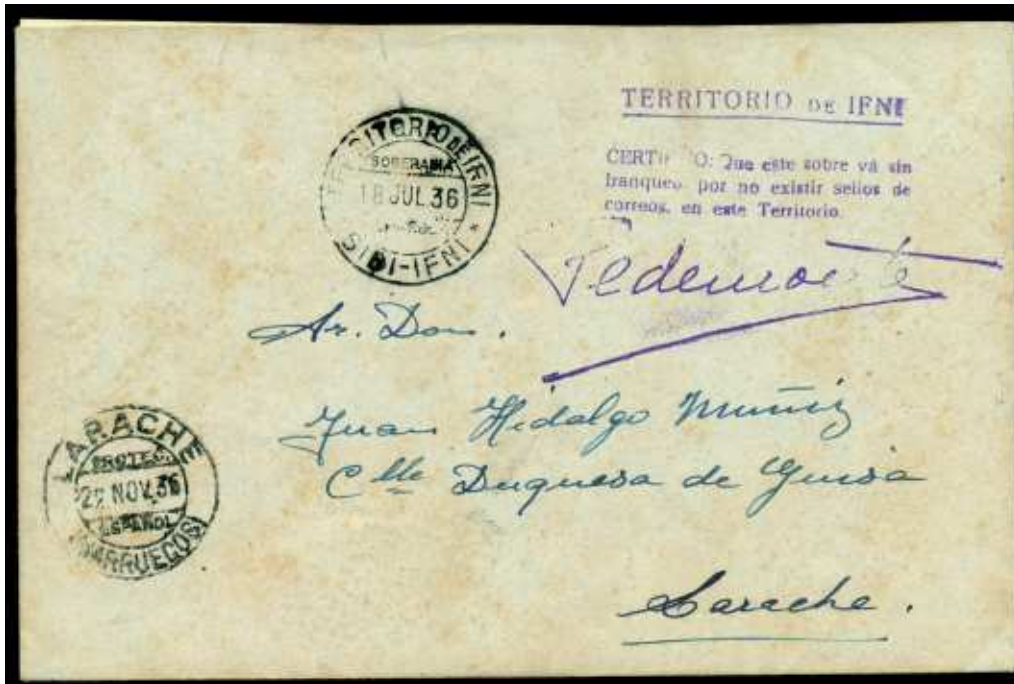 TERRITORIO DE IFNI
CERTIFICO: Que este sobre vá sin
franqueo, por no existir sellos de
correos, en este Territorio.
TERRITORIO DE IFNI
SOBERANIA
18 JUL 36
SIDI-IFNI
Sr. Don.
Juan Hidalgo Muñiz
Clle Duquesa de Guisa
Larache.
LARACHE
PROTEC.
22 NOV. 36
ESPAÑOL
(MARRUECOS)